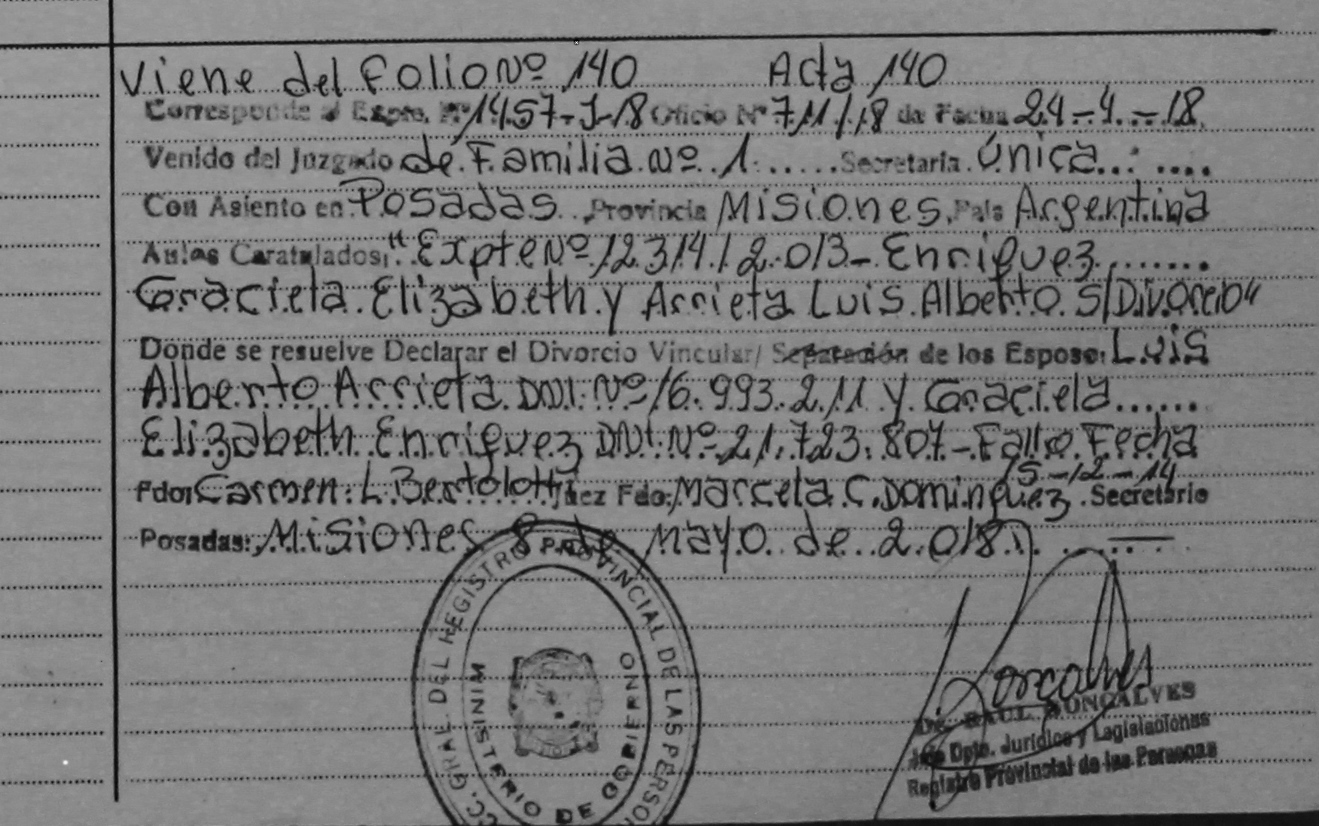 Viene del Folio Nº 140 Acta 140
Corresponde al Expte. Nº 1457-J-18 Oficio Nº 711/18 de Fecha 24-4-18
Venido del Juzgado de Familia Nº 1 ..... Secretaria Única ......
Con Asiento en Posadas . Provincia Misiones, País Argentina
Autos Caratulados: "Expte Nº 12314/2.013- Enriquez .......
Graciela Elizabeth y Arrieta Luis Alberto S/Divorcio"
Donde se resuelve Declarar el Divorcio Vincular/ Separación de los Esposo: Luis
Alberto Arrieta DNI. Nº 16.993.211 y Graciela ......
Elizabeth Enriquez DNI. Nº 21.723.807- Fallo Fecha
15-12-14
Fdo: Carmen L. Bertolotti Juez Fdo: Marcela C. Dominguez . Secretario
Posadas: Misiones 8 de Mayo de 2.018
CC. GRAL. DEL REGISTRO PROVINCIAL DE LAS PERSO
MINISTERIO DE GOBIERNO
Goncalves
Dr. RAUL GONCALVES
Jefe Dpto. Jurídico y Legislaciones
Registro Provincial de las Personas